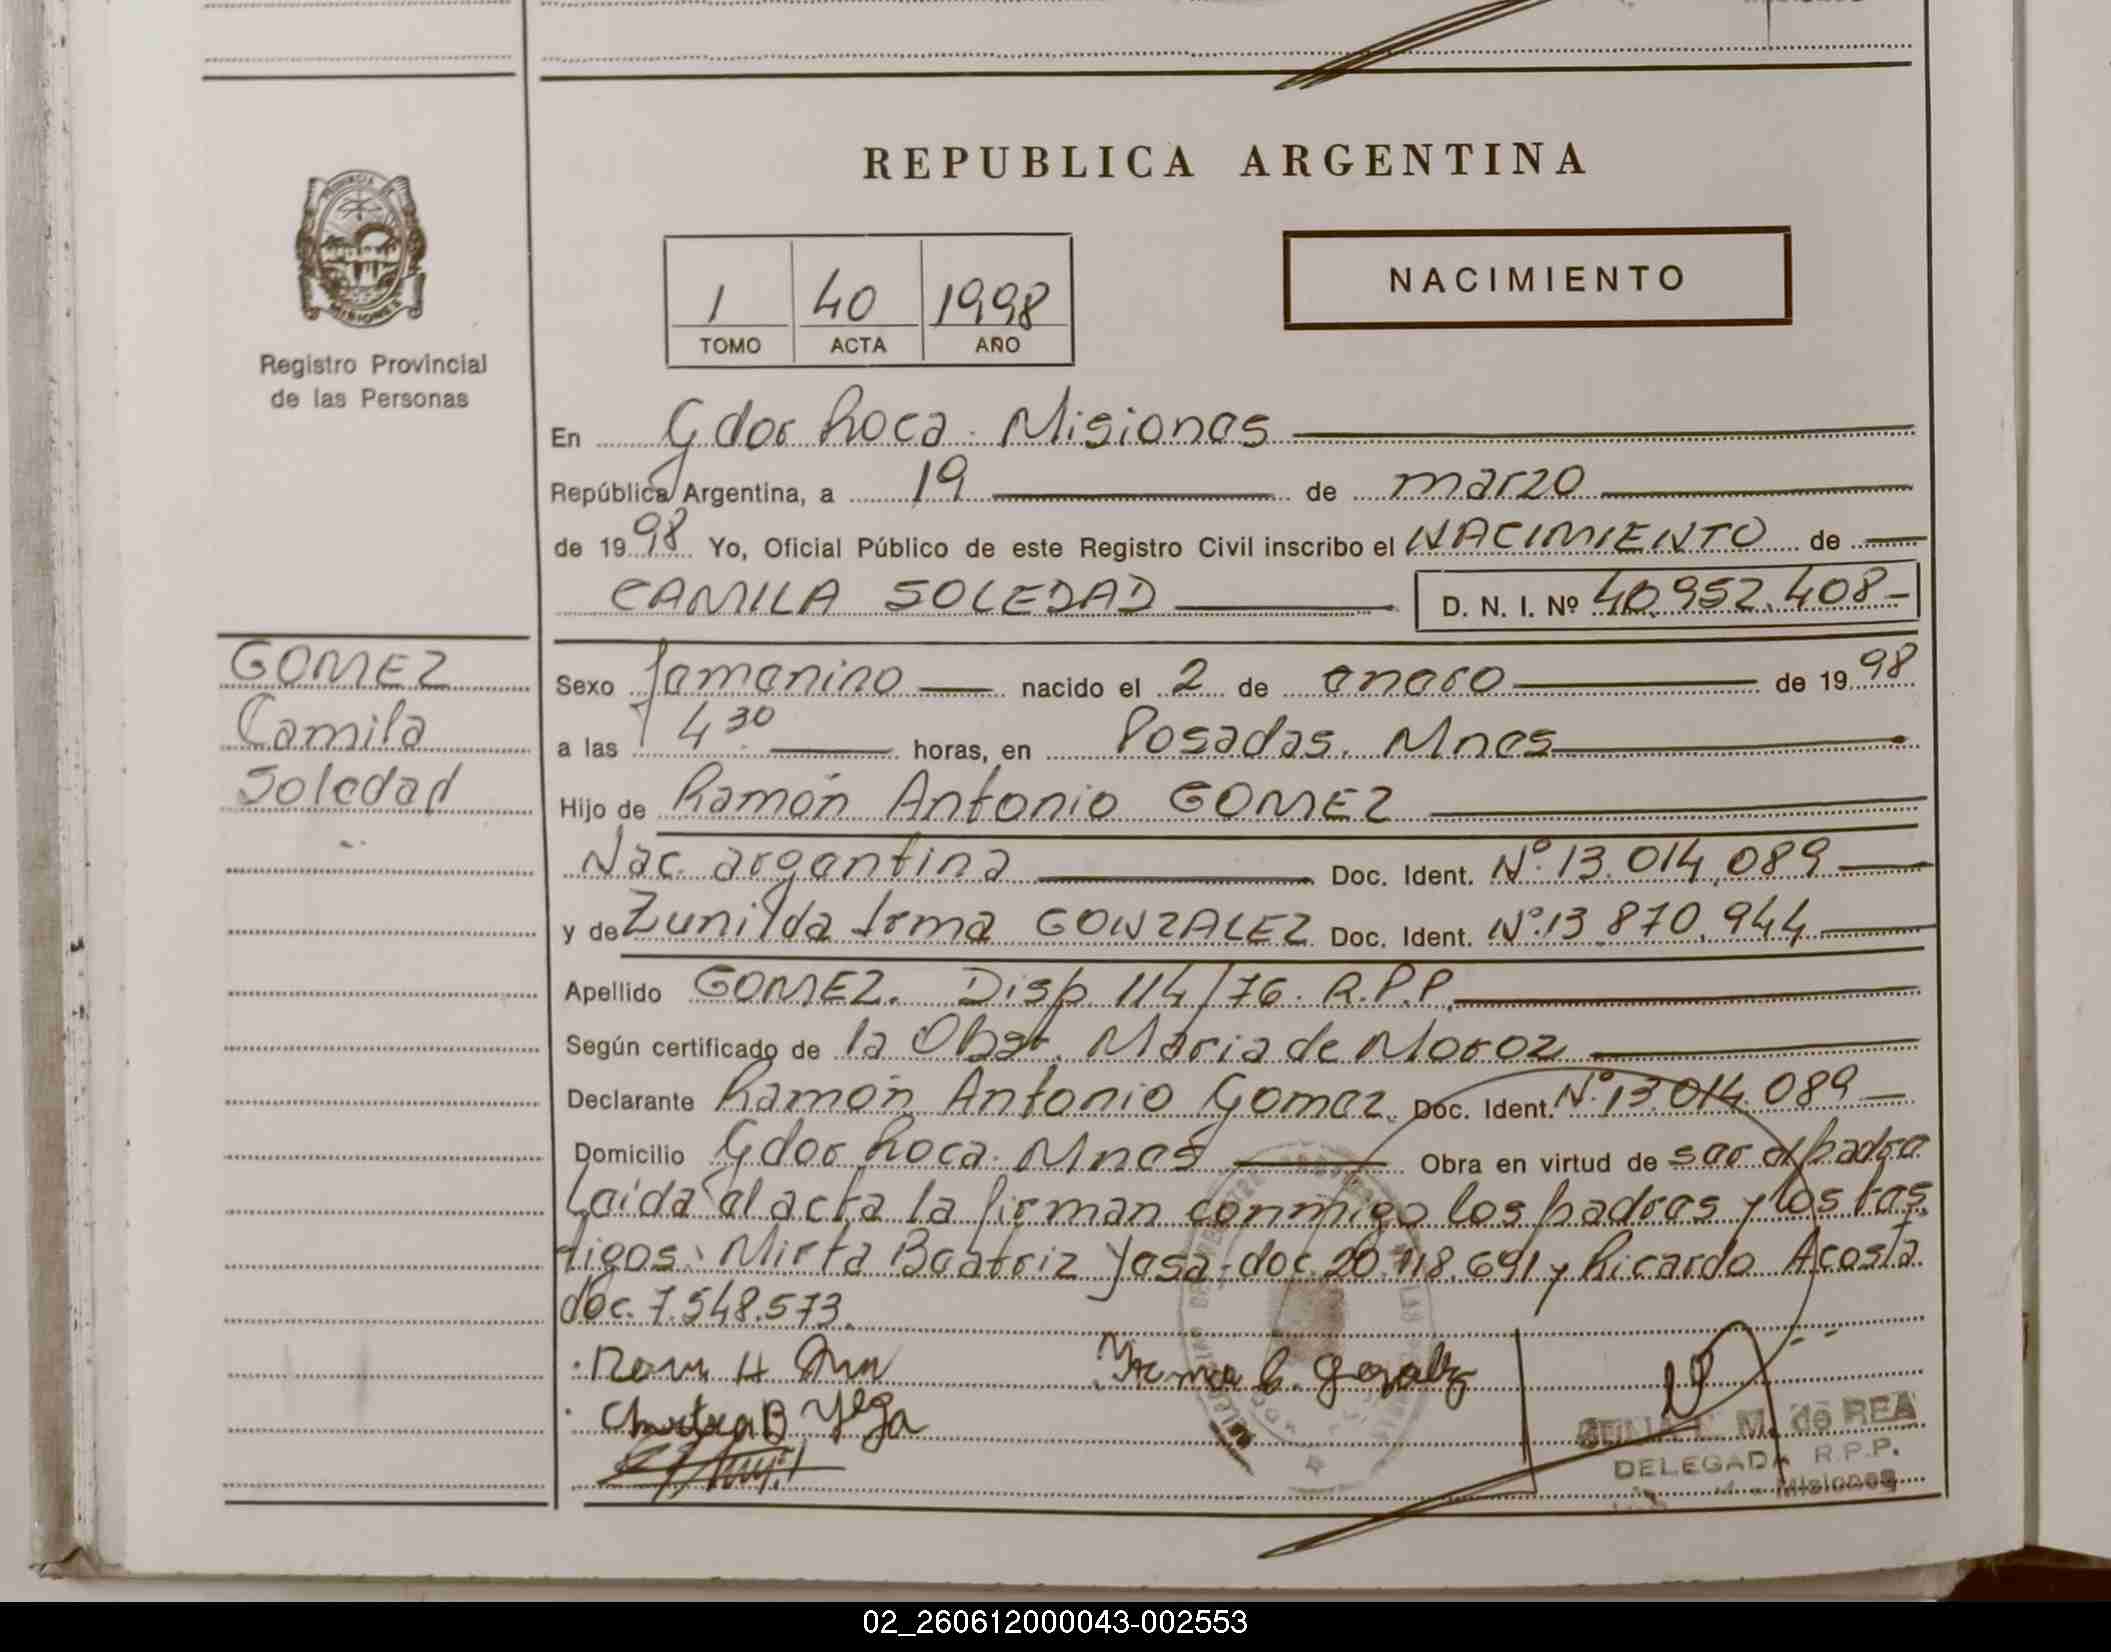 REPUBLICA ARGENTINA
PROVINCIA DE
MISIONES
Registro Provincial
de las Personas
1 40 1998
TOMO ACTA AÑO
NACIMIENTO
En Gdor Roca. Misiones
República Argentina, a 19 de marzo
de 1998 Yo, Oficial Público de este Registro Civil inscribo el NACIMIENTO de
CAMILA SOLEDAD D. N. I. Nº 40.952.408-
GOMEZ
Camila
Soledad
Sexo femenino nacido el 2 de enero de 1998
a las 4 30 horas, en Posadas. Mnes
Hijo de Ramón Antonio GOMEZ
Nac. argentina Doc. Ident. Nº 13.014.089
y de Zunilda Irma GONZALEZ Doc. Ident. Nº 13.870.944
Apellido GOMEZ. Disp 114/76. R.P.P.
Según certificado de la Obst. Maria de Moroz
Declarante Ramón Antonio Gomez. Doc. Ident. Nº 13.014.089
Domicilio Gdor Roca. Mnes Obra en virtud de ser el padre
Leida el acta la firman conmigo los padres y los tes
tigos: Mirta Beatriz Yesa-doc. 20.118.691 y Ricardo Acosta
doc. 7.548.573.
M. de REA
DELEGADA R.P.P.
Misiones
02_260612000043-002553